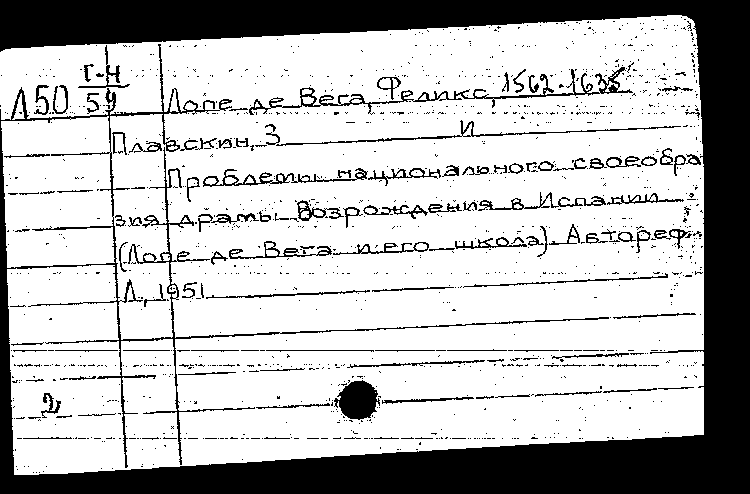 Г-Ч
Л50 59 Лопе де Вега, Феликс, 1562-1635
Плавскин, З И
Проблемы национального своеобра
зия драмы Возрождения в Испании
(Лопе де Вега и его школа). Автореф.
Л., 1951